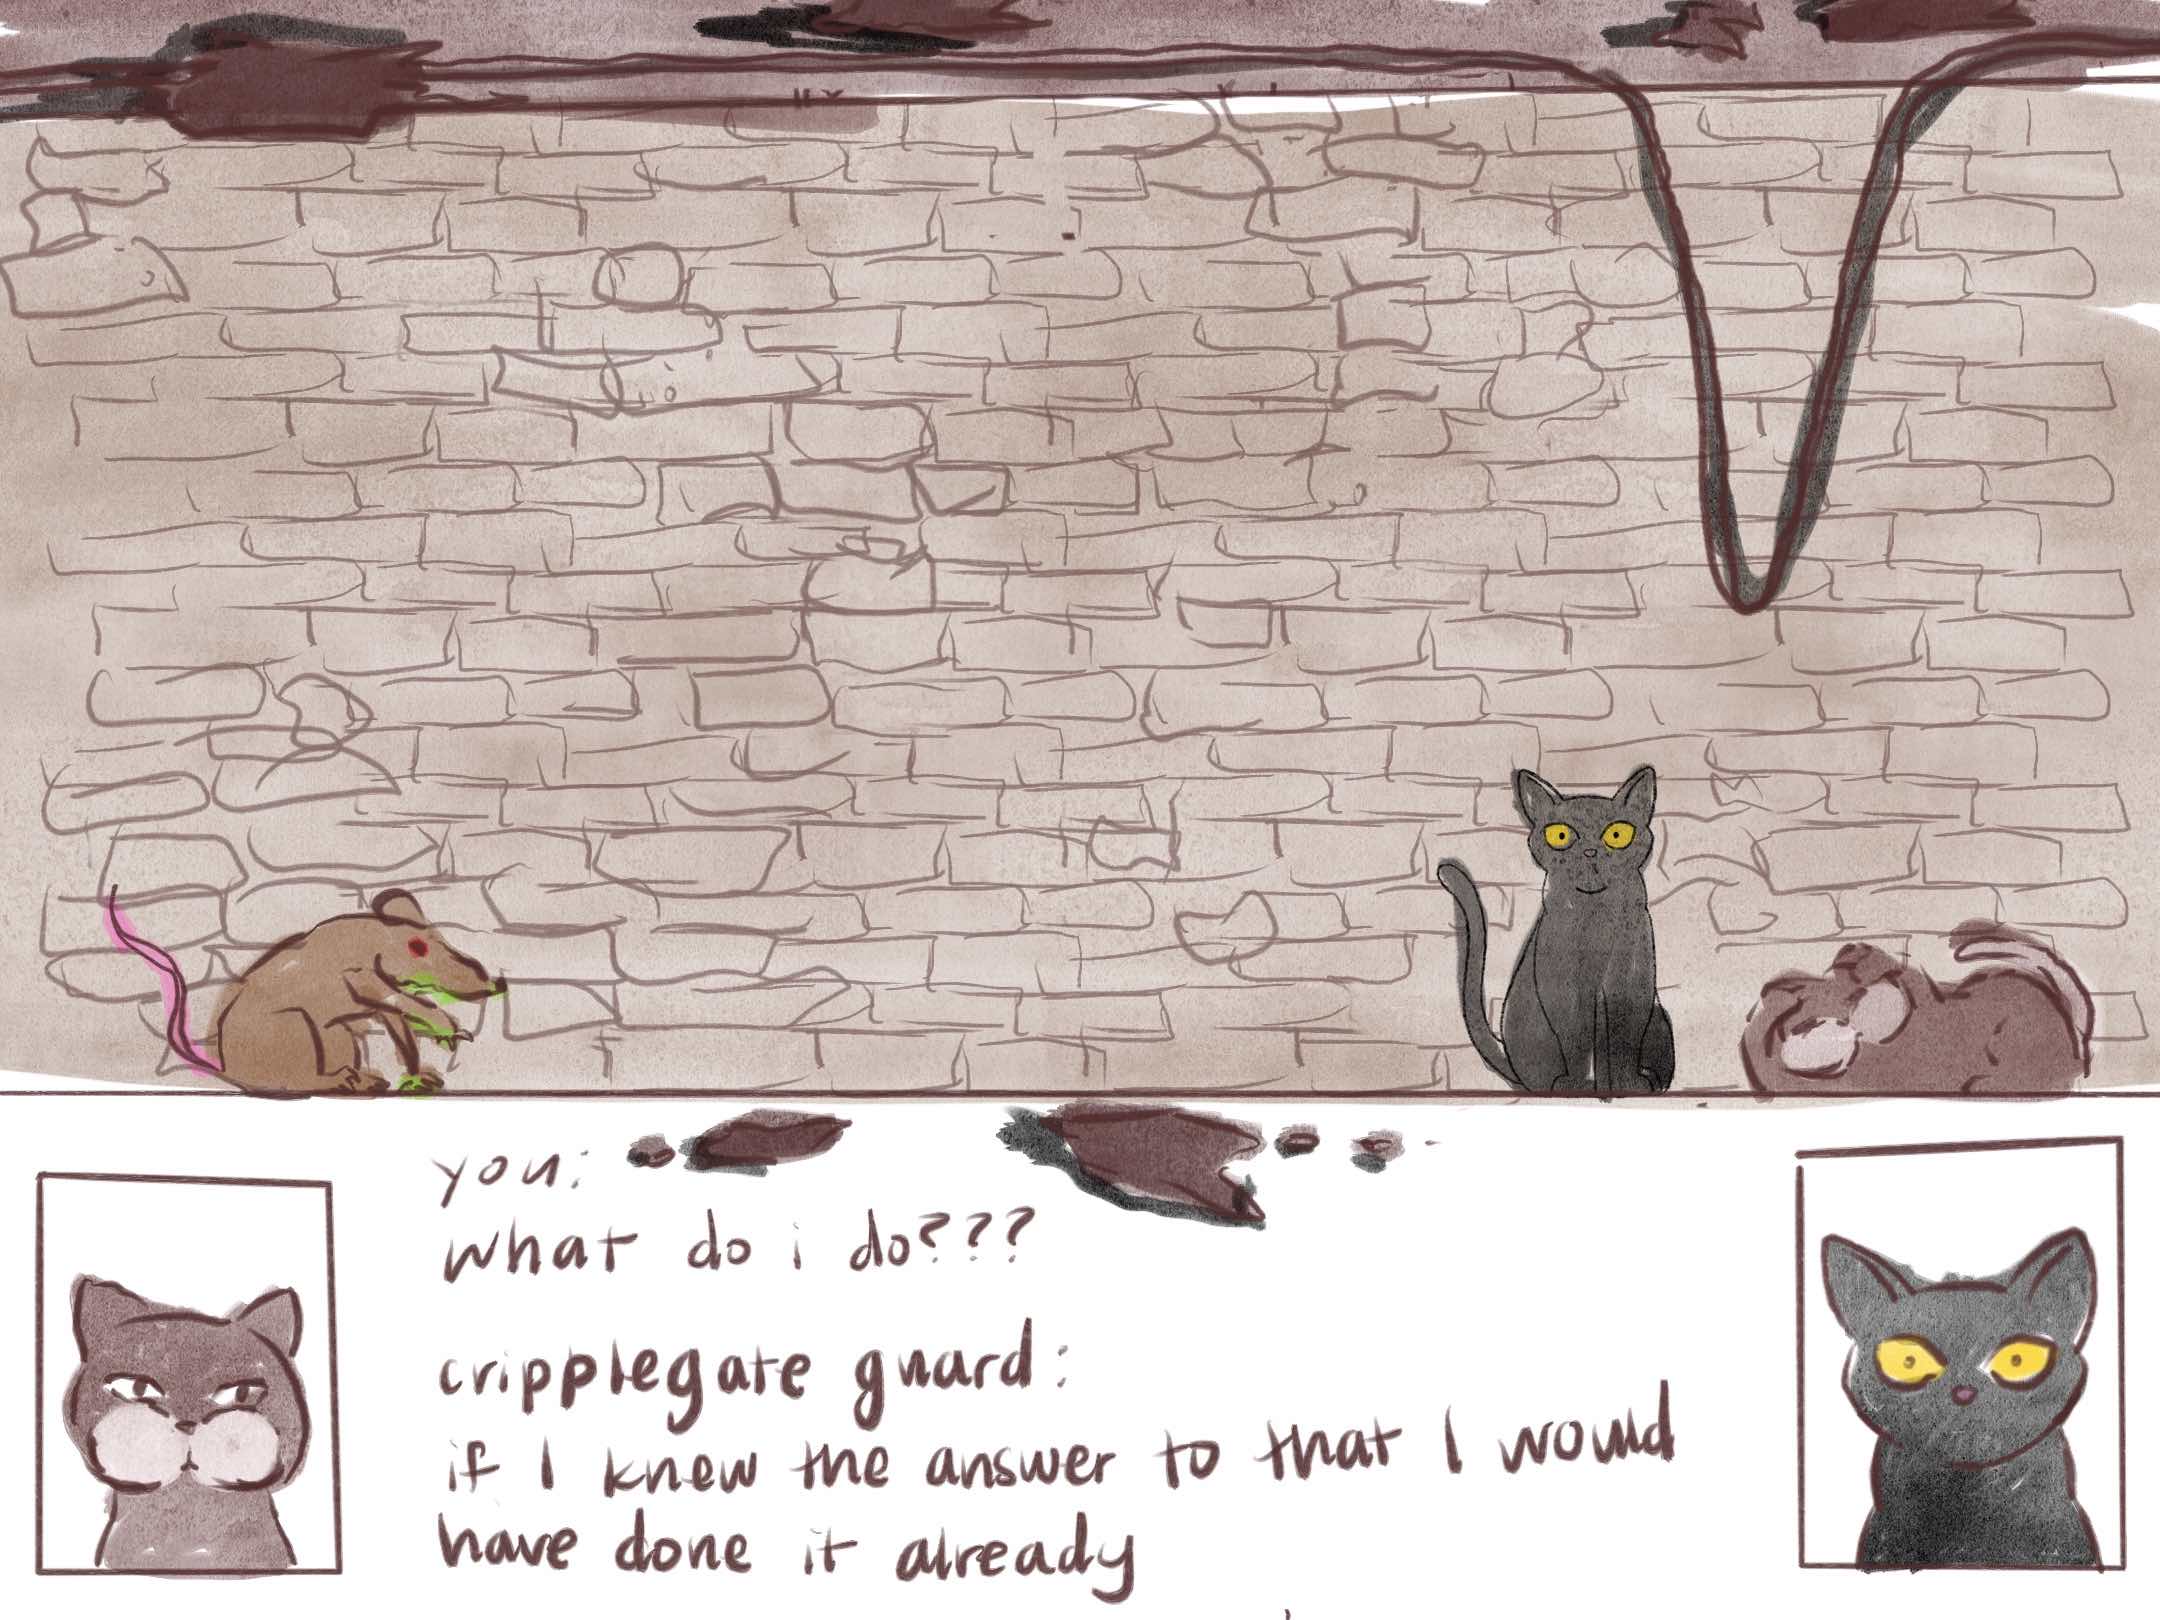 you:
what do i do???
cripplegate guard:
if I knew the answer to that I would
have done it already